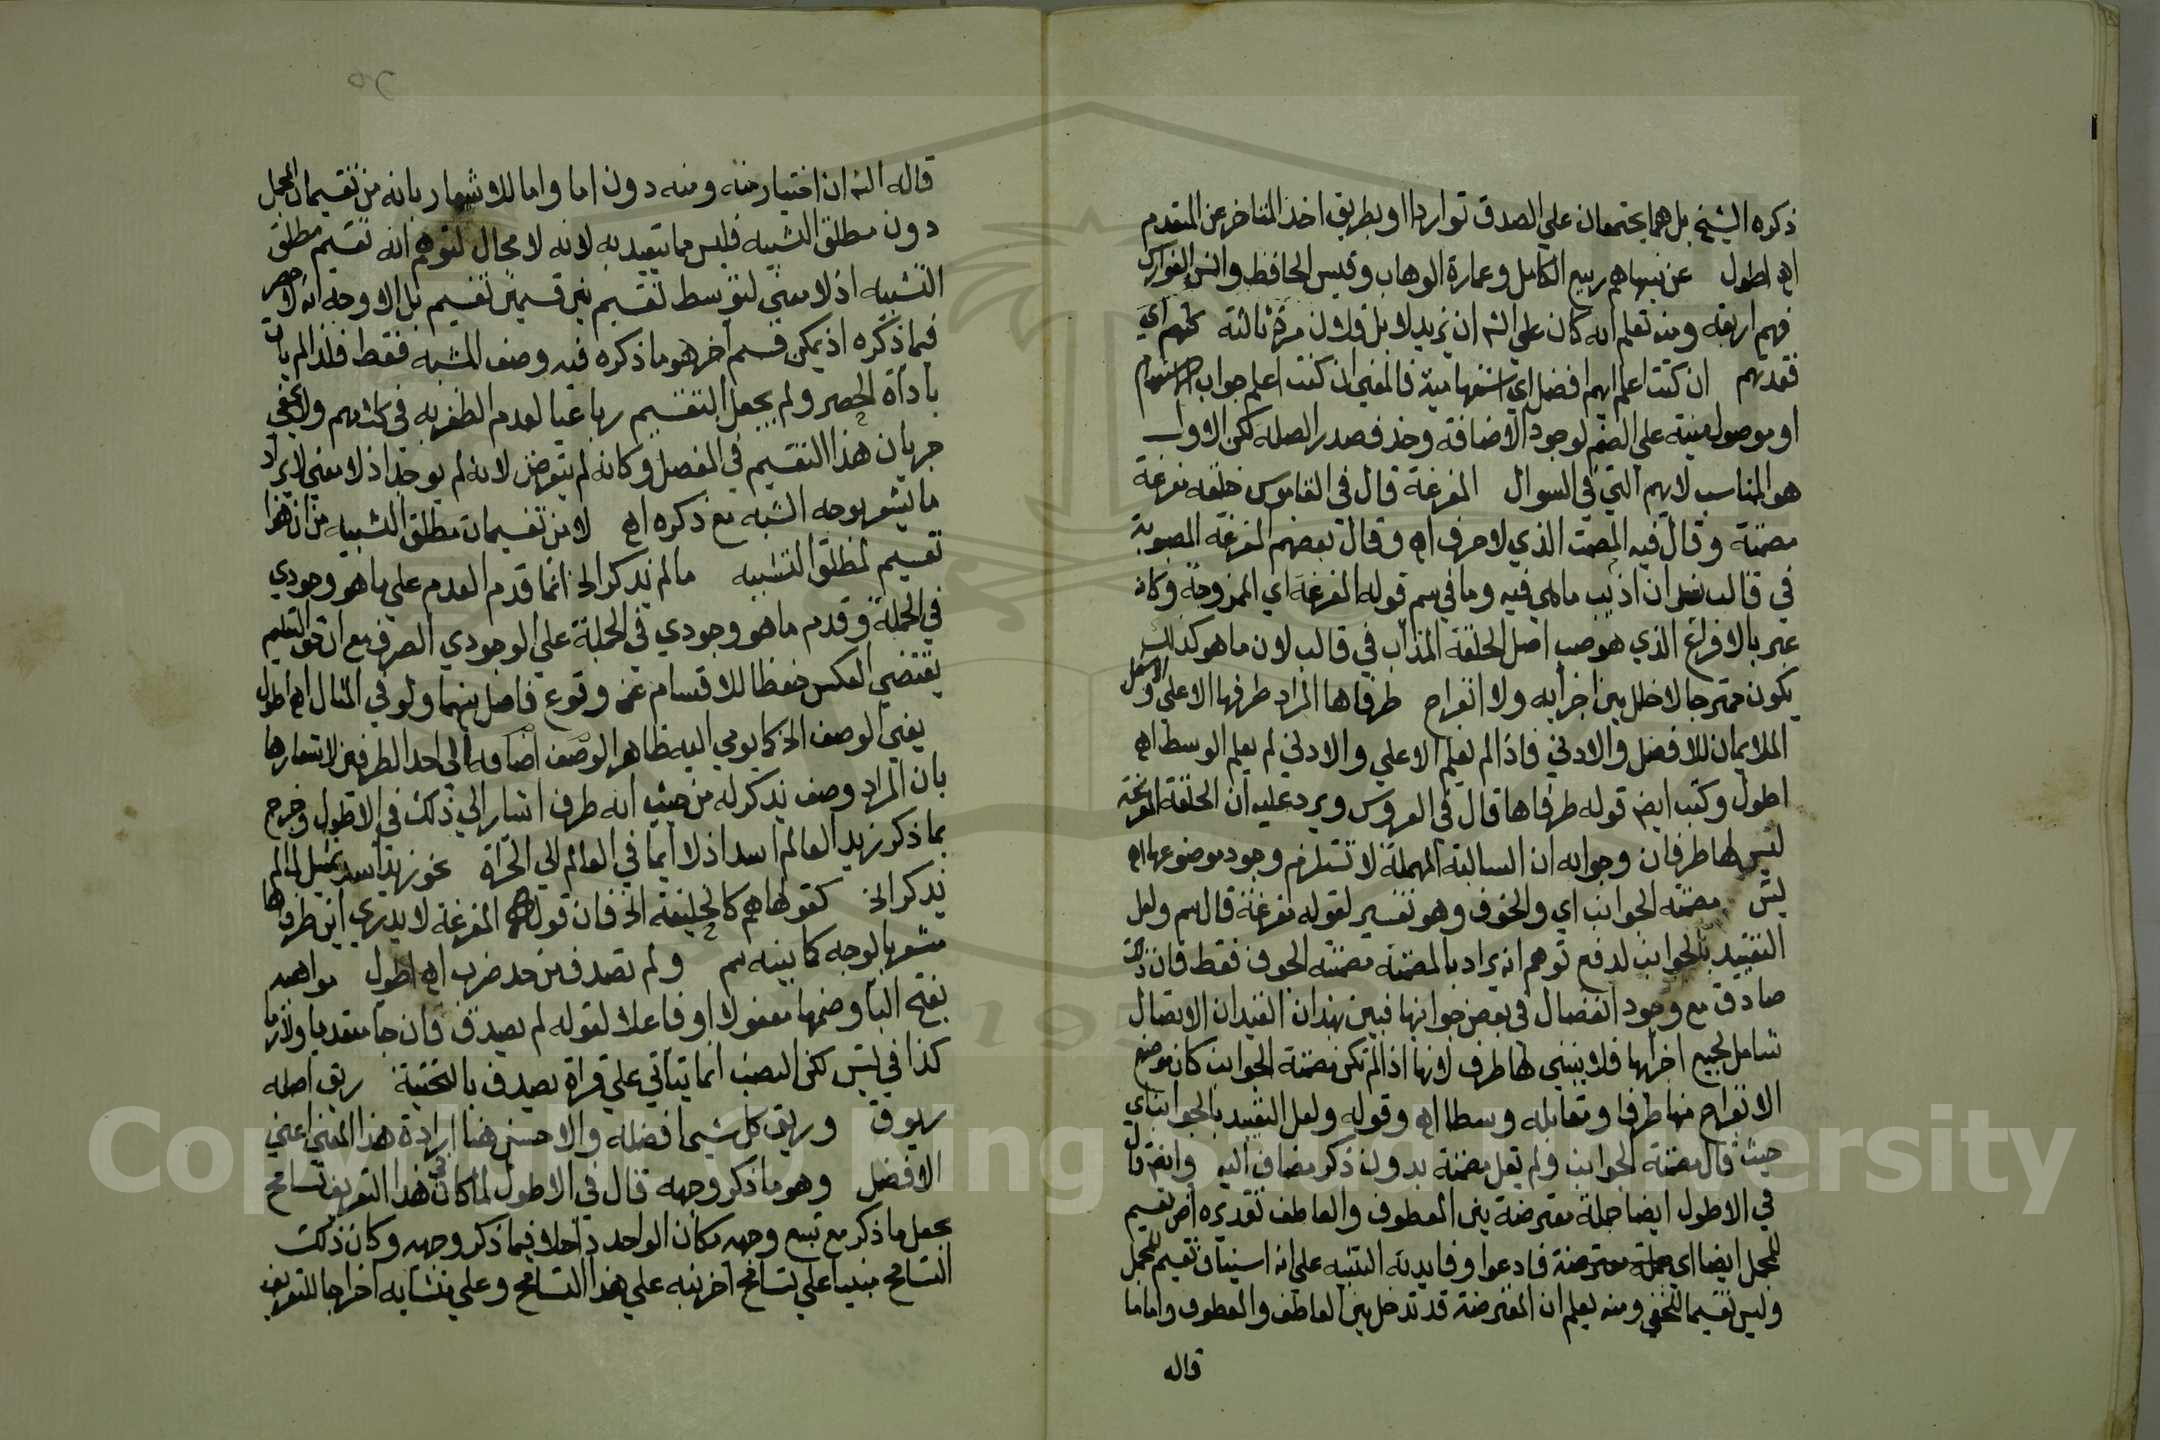 ذكره الشيخ بل هما يجتمعان علي الصدق تواردا او بطريق اخذ المتاخر عن المتقدم
اهـ اطول عن نبيها هم ربيع الكامل وعمارة الوهاب وقيس الحافظ وانس الفوارس
فهم اربعة ومنه تعلم انه كان علي الش ان يزيد لا بل فلان مرة ثالثة ثكلتهم اي
فقدتهم ان كنت اعلم ايهم افضل اي استفهامية فالمعني ان كنت اعلم جواب الاستفهام
او موصولة مبنية علي الضم لوجود الاضافة وحذف صدر الصلة لكن الاول
هو المناسب لايهم التي في السوال المفرغة قال في القاموس حلقة مفرغة
مصمتة وقال فيه المصمت الذي لا جوف اهـ وقال بعضهم المفرغة المصبوبة
في قالب بعد ان اذيب ما هي فيه وما في سم قوله المفرغة اي الممزوجة وكانه
عبر بالافراغ الذي هو صب اصل الحلقة المذاب في قالب لان ما هو كذلك
يكون ممتزجا لا خلل بين اجزايه ولا انفراج طرفاها المراد طرفها الاعلي والاسفل
الملايمان للافضل والادني فاذا لم يعلم الاعلي والادني لم يعلم الوسط اهـ
اطول وكتب ايضا قوله طرفاها قال في العروس ويرد عليه ان الحلقة المفرغة
ليس لها طرفان وجوابه ان السالبة المهملة لا تستلزم وجود موضوعها اهـ
يس مصمتة الجوانب اي والجوف وهو تفسير لقوله مفرغة قال سم ولعل
التقييد بالجوانب لدفع توهم انه يراد بالمصمتة مصمتة الجوف فقط فان ذلك
صادق مع وجود انفصال في بعض جوانبها فبين بهذان القيدان الاتصال
شامل لجميع اجزائها فلا ينبني لها طرف لانها اذا لم تكن مصمتة الجوانب كان موضع
الانفراج منها طرفا ومقابله وسطا اهـ وقوله ولعل التقييد بالجوانب اي
حيث قال مصمتة الجوانب ولم يقل مصمتة بدون ذكر مضاف اليه وايضا قال
في الاطول ايضا جملة معترضة بين المعطوف والعاطف تقديره آض تقسيم
المجمل ايضا اي جملة معترضة فادعوا وفايدته التنبيه علي انه استيناف تقسيم للمجمل
وليس تقسيما للخفي ومنه يعلم ان المعترضة قد تدخل بين العاطف والمعطوف واما ما
قاله
قاله الش ان اختيار منه ومنه دون اما واما للاشعار بانه من تقسيمات المجمل
دون مطلق التشبيه فليس مما يتعبد به لانه لا مجال لتوهم انه تقسيم مطلق
التشبيه اذ لا معني لتوسط تقسيم بين قسمي تقسيم بل الاوجه انه لا حصر
فيما ذكره اذ يمكن قسم آخر هو ما ذكره فيه وصف المشبه فقط فلذا لم يات
باداة الحصر ولم يجعل التقسيم رباعيا لعدم الظفر به في كلامهم ولا يخفي
جريان هذا التقسيم في المفصل وكانه لم يتعرض لانه لم يوجد اذ لا معني لايراد
ما يشعر بوجه الشبه مع ذكره اهـ لا من تقسيمات مطلق التشبيه من ان هذا
تقسيم لمطلق التشبيه ما لم يذكر الخ انما قدم العدم علي ما هو وجودي
في الجملة وقدم ما هو وجودي في الجملة علي الوجودي الصرف مع ان حق التعليم
يقتضي العكس حفظا للاقسام عن وقوع فاصل بينهما ولو في المثال اهـ اطول
يعني الوصف الخ كما يومي اليه ظاهر الوصف اضافه الي احد الطرفين لاشعارها
بان المراد وصف يذكر له من حيث انه طرف اشار الي ذلك في الاطول وخرج
بما ذكر زيد العالم اسد اذ لا ايما في العالم الي الجراة نحو زيد اسد تمثيل لما لم
يذكر الخ كقولها هم كالحلقة الخ فان قولها المفرغة لا يدري اين طرفاها
مشعر بالوجه كما بينه سم ولم تصدف من حد ضرب اهـ اطول مواهبه
بفتح البا وضمها مفعولا او فاعلا لقوله لم يصدف فان جا متعديا ولازما
كذا في يس لكن النصب انما يتاتي علي قراة يصدف بالتحتية ريق اصله
ريوق وريق كل شي افضله والاحسن هنا ارادة هذا المعني اعني
الافضل وهو ما ذكر وجهه قال في الاطول لما كان في هذا التعريف تسامح
بجعل ما ذكر مع تبع وجهه مكان الواحد داخلا فيما ذكر وجهه وكان ذلك
التسامح مبنيا علي تسامح آخر نبه علي هذا التسامح وعلي منشايه اخراجا للتعريف
Copyright © King Saud University